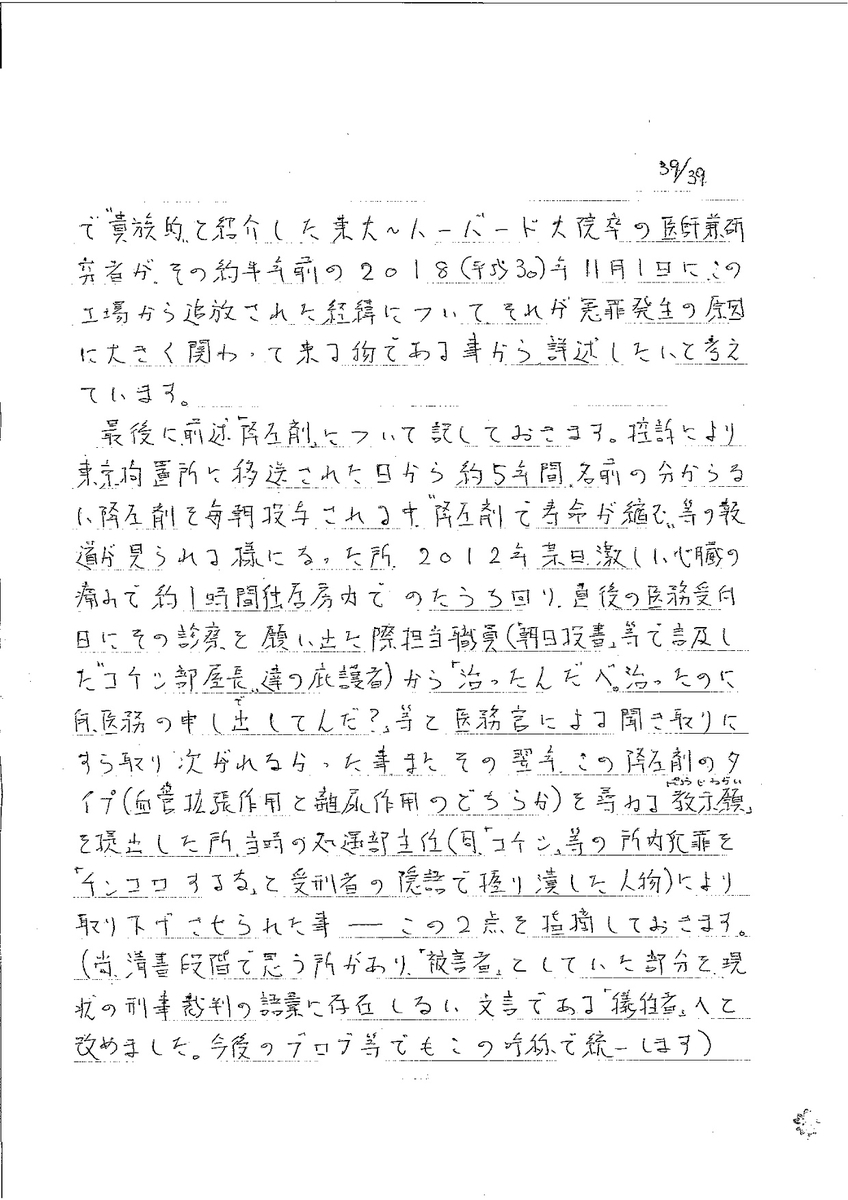 39/39
で“貴族的”と紹介した東大〜ハーバード大院卒の医師兼研
究者が、その約半年前の2018(平成30)年11月1日にこの
工場から追放された経緯について、それが冤罪発生の原因
に大きく関わって来る物である事から、詳述したいと考え
ています。
最後に前述「降圧剤」について記しておきます。控訴により
東京拘置所に移送された日から約5年間、名前の分からな
い降圧剤を毎朝投与されます。“降圧剤で寿命が縮む”等の報
道が見られる様になった所、2012年某日、激しい心臓の
痛みで約1時間独居房内でのたうち回り、直後の医務受付
日にその診察を願い出た際担当職員(「朝日投書」等で言及し
た“コケシ部屋長”達の庇護者)から「治ったんだべ。治ったのに
何、医務の申し出してんだ?」等と医務官による聞き取りに
すら取り次がれなかった事、またその翌年、この降圧剤のタ
イプ(血管拡張作用と利尿作用のどちらか)を尋ねる「教示願」
を提出した所、当時の処遇部主任(同「コケシ」等の所内犯罪を
「チンコロするな」と受刑者の隠語で握り潰した人物)により
取り下げさせられた事――この2点を指摘しておきます。
(尚、清書段階で思う所があり、「被害者」としていた部分を、現
状の刑事裁判の語彙に存在しない文言である「犠牲者」へと
改めました。今後のブログ等でもこの呼称で統一します)